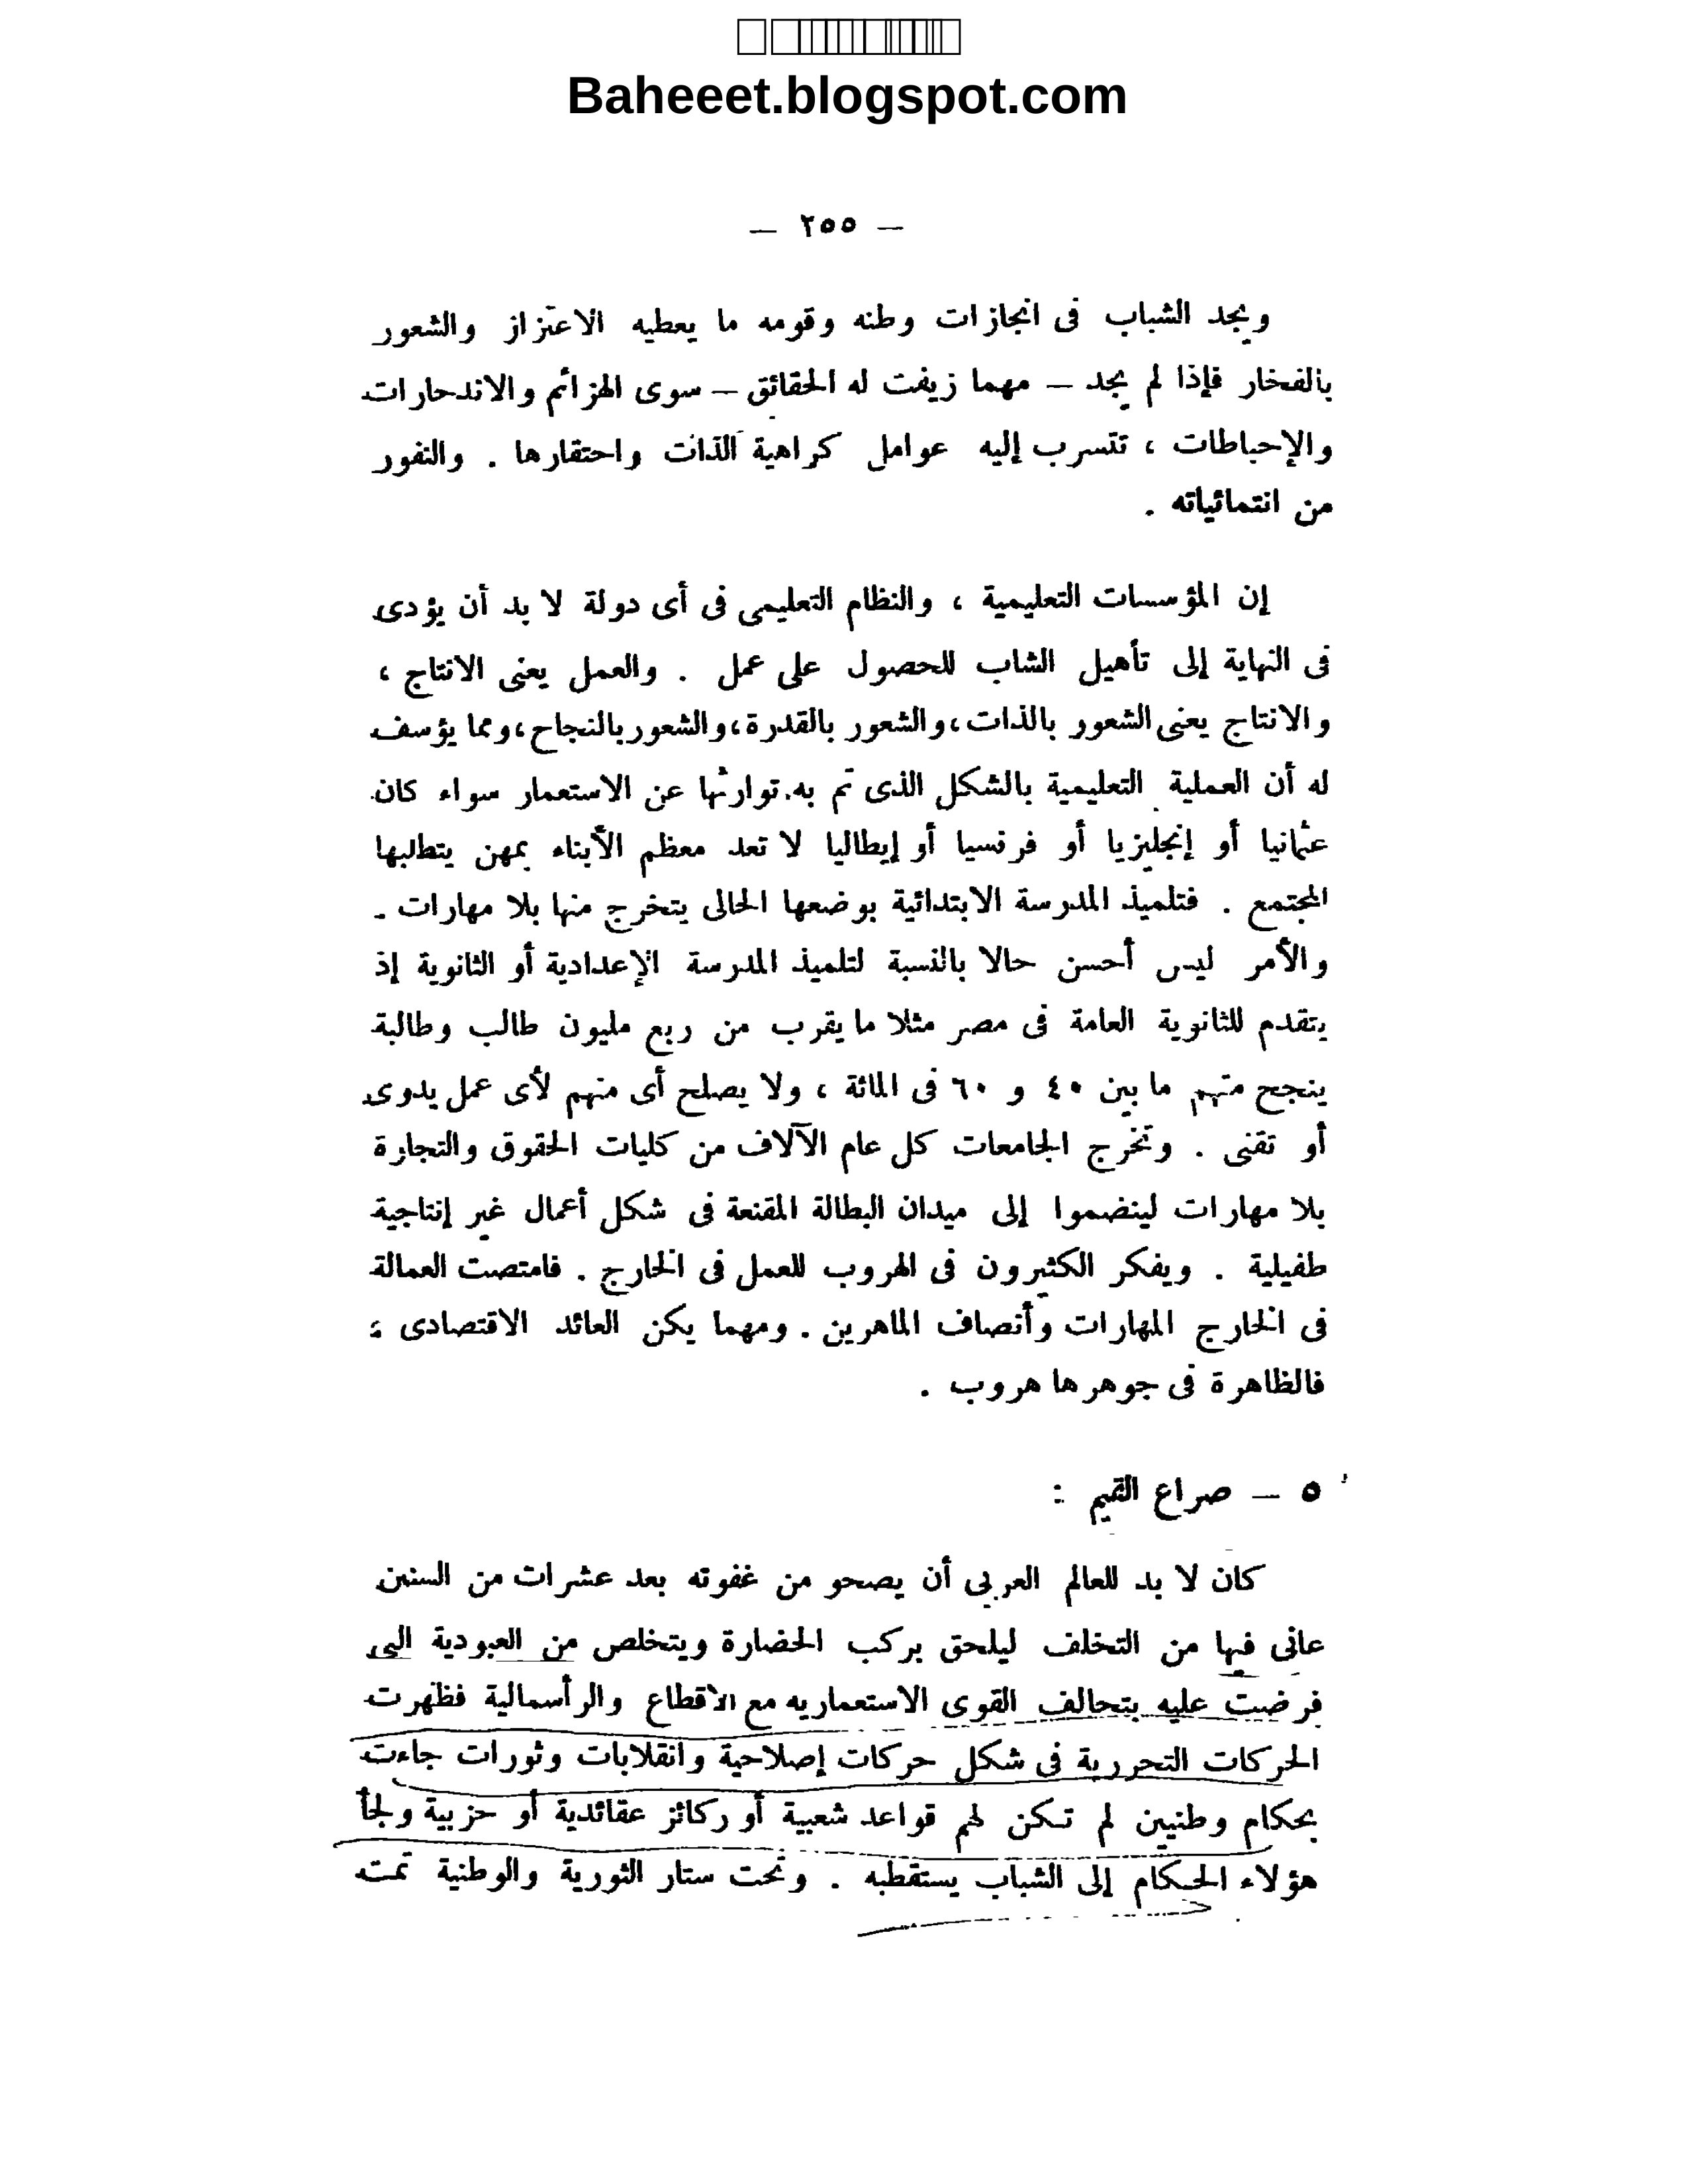 Baheeet.blogspot.com
— ٢٥٥ —
ويجد الشباب فى انجازات وطنه وقومه ما يعطيه الاعتزاز والشعور
بالفخار فإذا لم يجد — مهما زيفت له الحقائق — سوى الهزائم والاندحارات
والإحباطات ، تتسرب إليه عوامل كراهية الذات واحتقارها . والنفور
من انتمائياته .
إن المؤسسات التعليمية ، والنظام التعليمى فى أى دولة لا بد أن يؤدى
فى النهاية إلى تأهيل الشاب للحصول على عمل . والعمل يعنى الانتاج ،
والانتاج يعنى الشعور بالذات ، والشعور بالقدرة ، والشعور بالنجاح ، ومما يؤسف
له أن العملية التعليمية بالشكل الذى تم به توارثها عن الاستعمار سواء كان
عثمانيا أو إنجليزيا أو فرنسيا أو إيطاليا لا تعد معظم الأبناء بمهن يتطلبها
المجتمع . فتلميذ المدرسة الابتدائية بوضعها الحالى يتخرج منها بلا مهارات .
والأمر ليس أحسن حالا بالنسبة لتلميذ المدرسة الإعدادية أو الثانوية إذ
يتقدم للثانوية العامة فى مصر مثلا ما يقرب من ربع مليون طالب وطالبة
ينجح منهم ما بين ٤٠ و ٦٠ فى المائة ، ولا يصلح أى منهم لأى عمل يدوى
أو تقنى . وتخرج الجامعات كل عام الآلاف من كليات الحقوق والتجارة
بلا مهارات لينضموا إلى ميدان البطالة المقنعة فى شكل أعمال غير إنتاجية
طفيلية . ويفكر الكثيرون فى الهروب للعمل فى الخارج . فامتصت العمالة
فى الخارج المهارات وأنصاف الماهرين . ومهما يكن العائد الاقتصادى ؛
فالظاهرة فى جوهرها هروب .
٥ — صراع القيم :
كان لا بد للعالم العربى أن يصحو من غفوته بعد عشرات من السنين
عانى فيها من التخلف ليلحق بركب الحضارة ويتخلص من العبودية التى
فرضت عليه بتحالف القوى الاستعماريه مع الاقطاع والرأسمالية فظهرت
الحركات التحررية فى شكل حركات إصلاحية وانقلابات وثورات جاءت
بحكام وطنيين لم تكن لهم قواعد شعبية أو ركائز عقائدية أو حزبية ولجأ
هؤلاء الحكام إلى الشباب يستقطبه . وتحت ستار الثورية والوطنية تمت